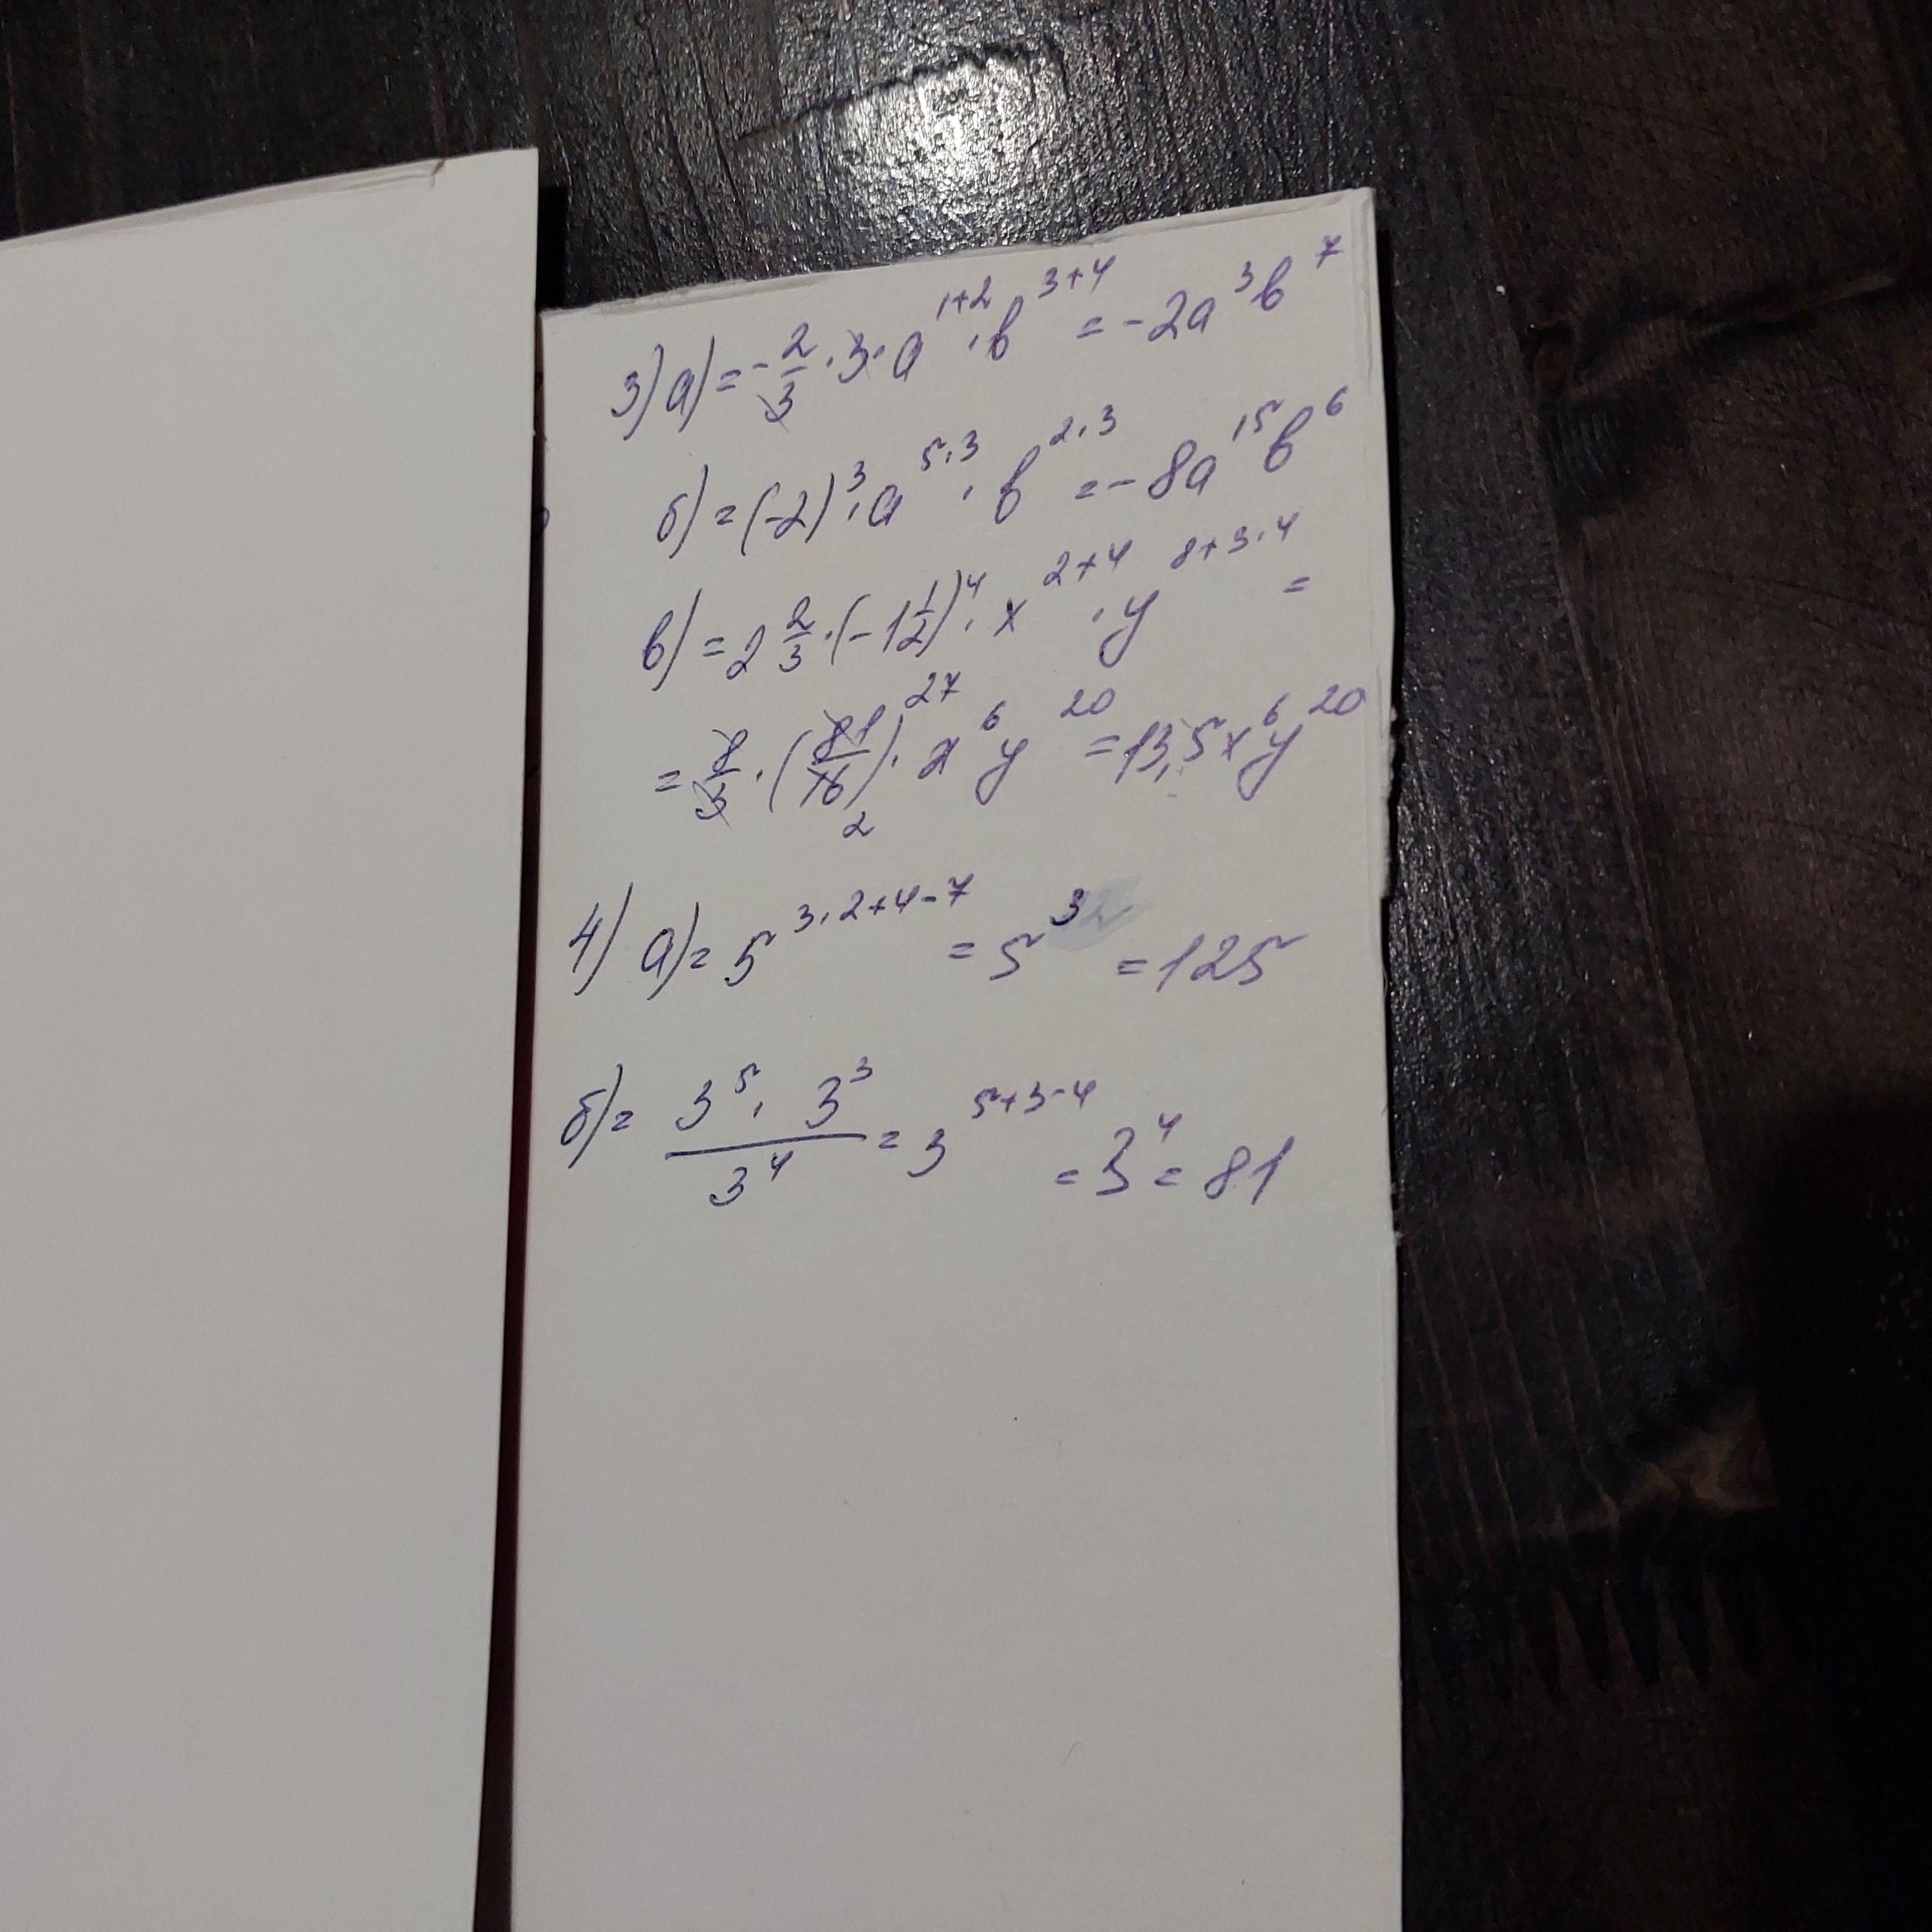 3) а) = -2/3 · 3 · a^(1+2) · b^(3+4) = -2a^3b^7
б) = (-2)^3 · a^(5·3) · b^(2·3) = -8a^15b^6
в) = 2 2/3 · (-1 1/2)^4 · x^(2+4) · y^(8+3·4) =
= 8/3 · (81/16) 27 2 · x^6y^20 = 13,5x^6y^20
4) а) = 5^(3·2+4-7) = 5^3 = 125
б) = (3^5 · 3^3)/3^4 = 3^(5+3-4) = 3^4 = 81